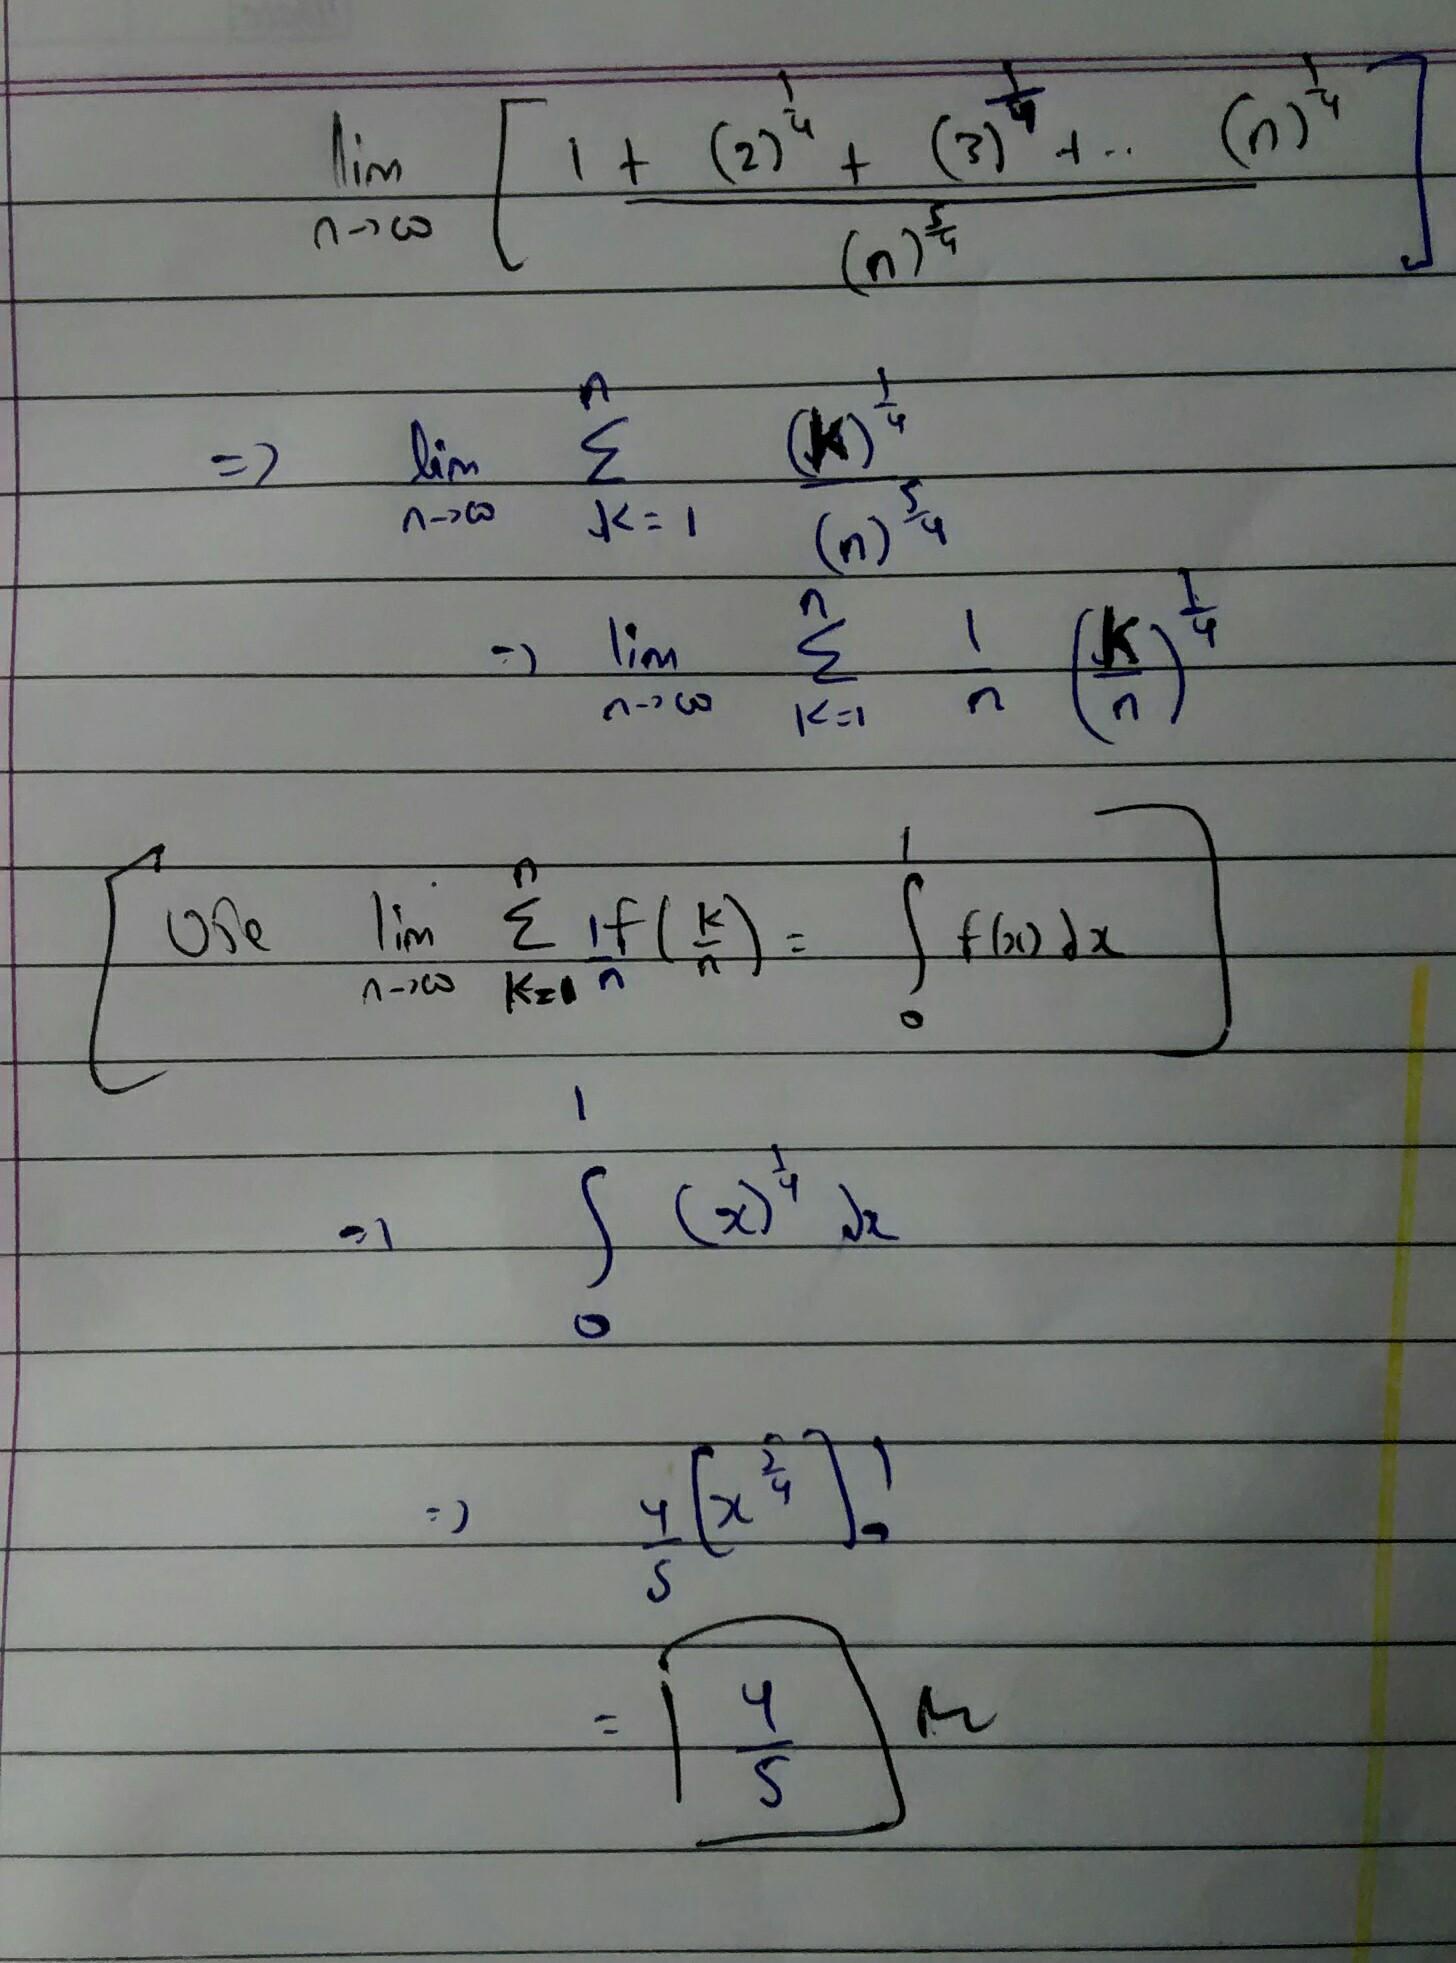 lim n→∞ [ (1 + (2)^{1/4} + (3)^{1/4} + .. (n)^{1/4}) / (n)^{5/4} ]
=> lim n→∞ Σ_{K=1}^{n} (K)^{1/4} / (n)^{5/4}
=> lim n→∞ Σ_{K=1}^{n} 1/n (K/n)^{1/4}
[ Use lim n→∞ Σ_{K=1}^{n} 1/n f(K/n) = ∫_0^1 f(x) dx ]
=> ∫_0^1 (x)^{1/4} dx
=> 4/5 [x^{5/4}]_0^1
= 4/5